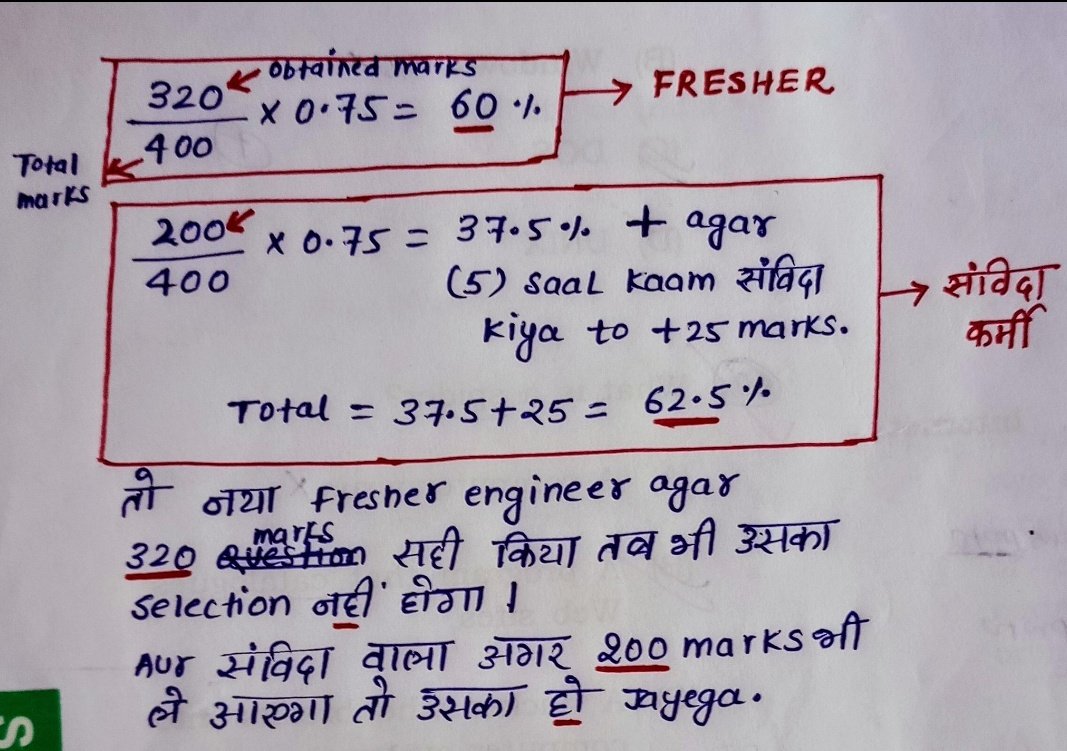 obtained marks
320/400 × 0.75 = 60 % → FRESHER
Total
marks
200/400 × 0.75 = 37.5 % + agar
(5) saal kaam संविदा
kiya to +25 marks.
→ संविदा
कर्मी
Total = 37.5 + 25 = 62.5 %
तो नया fresher engineer agar
marks
320 question सही किया तब भी उसका
selection नहीं होगा ।
Aur संविदा वाला अगर 200 marks भी
ले आएगा तो उसका हो jayega.
S